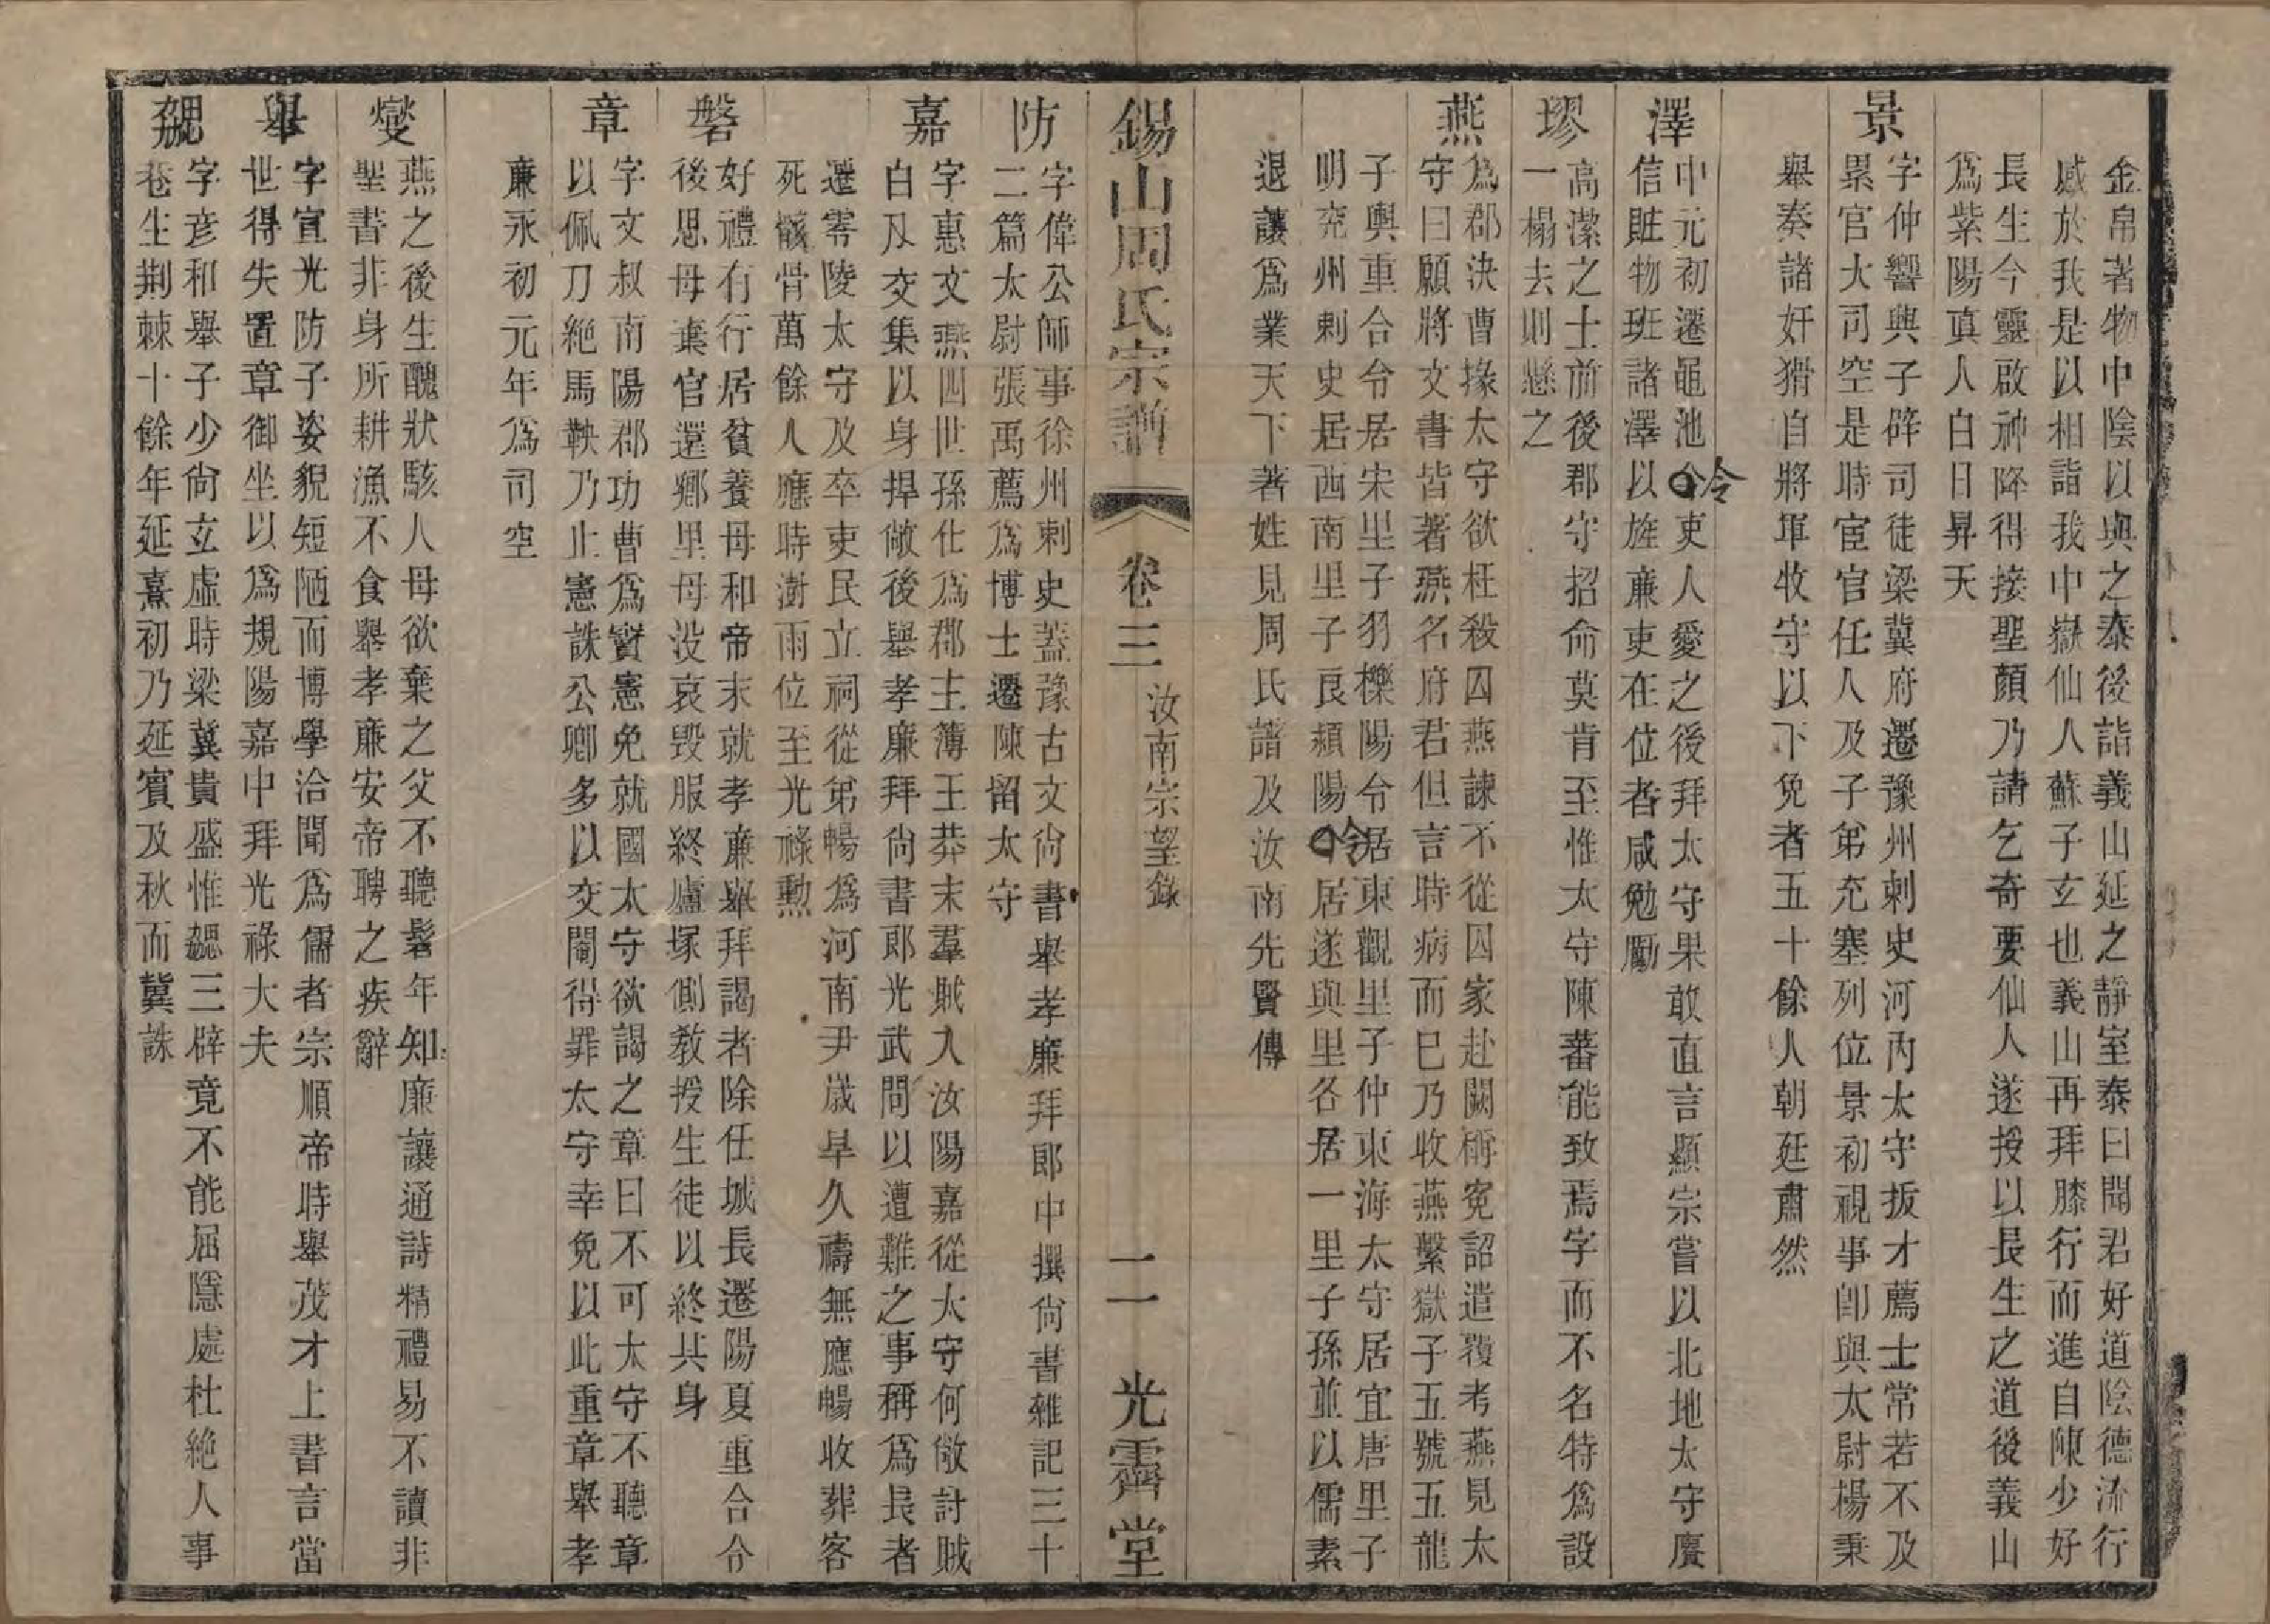 金帛著物中陰以與之泰後詣義山延之靜室泰曰聞君好道陰德流行
感於我是以相詣我中嶽仙人蘇子玄也義山再拜膝行而進自陳少好
長生今靈啟神降得接聖顏乃請乞奇要仙人遂授以長生之道後義山
爲紫陽真人白日昇天
景
字仲響興子辟司徒梁冀府遷豫州刺史河內太守拔才薦士常若不及
累官大司空是時宦官任人及子弟充塞列位景初視事卽與太尉楊秉
舉奏諸奸猾自將軍牧守以下免者五十餘人朝廷肅然
澤
中元初遷黽池令吏人愛之後拜太守果敢直言顯宗嘗以北地太守廖
信贓物班諸澤以旌廉吏在位者咸勉勵
璆
高潔之士前後郡守招命莫肯至惟太守陳蕃能致焉字而不名特爲設
一榻去則懸之
燕
爲郡決曹掾太守欲枉殺囚燕諫不從囚家赴闕稱寃詔遣覆考燕見太
守曰願將文書皆著燕名府君但言時病而已乃收燕繫獄子五號五龍
子輿重合令居宋里子羽櫟陽令居東觀里子仲東海太守居宜唐里子
明兖州刺史居西南里子良潁陽令居遂與里各居一里子孫並以儒素
退讓爲業天下著姓見周氏譜及汝南先賢傳
錫山周氏宗譜 卷三 汝南宗望錄 二 光霽堂
防
字偉公師事徐州刺史蓋豫古文尙書舉孝廉拜郞中撰尙書雜記三十
二篇太尉張禹薦爲博士遷陳留太守
嘉
字惠文燕四世孫仕爲郡主簿王莽末羣賊入汝陽嘉從太守何敞討賊
白刃交集以身捍敞後舉孝廉拜尙書郞光武問以遭難之事稱爲長者
遷零陵太守及卒吏民立祠從弟暢爲河南尹歲旱久禱無應暢收葬客
死骸骨萬餘人應時澍雨位至光祿勳
磐
好禮有行居貧養母和帝末就孝廉舉拜謁者除任城長遷陽夏重合令
後思母棄官還鄉里母沒哀毀服終廬塚側敎授生徒以終其身
章
字文叔南陽郡功曹爲竇憲免就國太守欲謁之章曰不可太守不聽章
以佩刀絕馬鞅乃止憲誅公卿多以交關得罪太守幸免以此重章舉孝
廉永初元年爲司空
燮
燕之後生醜狀駭人母欲棄之父不聽髫年知廉讓通詩精禮易不讀非
聖書非身所耕漁不食舉孝廉安帝聘之疾辭
舉
字宣光防子姿貌短陋而博學洽聞爲儒者宗順帝時舉茂才上書言當
世得失置章御坐以爲規陽嘉中拜光祿大夫
勰
字彥和舉子少尙玄虛時梁冀貴盛惟勰三辟竟不能屈隱處杜絕人事
巷生荆棘十餘年延熹初乃延賓及秋而冀誅